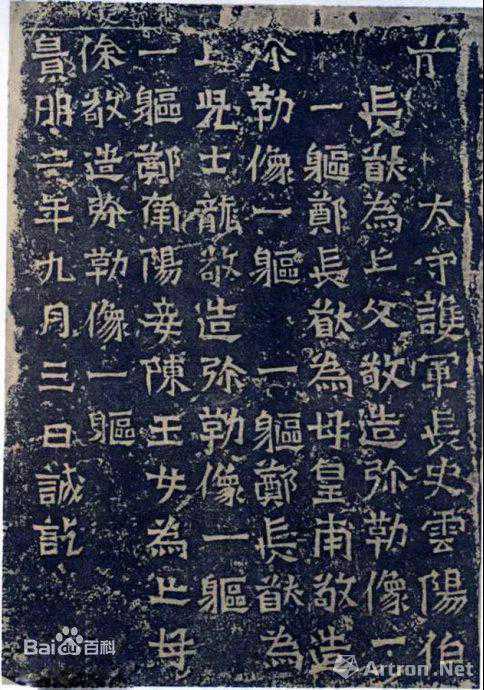 太守護軍長史雲陽伯
長猷為亡父敬造弥勒像一
一軀鄭長猷為母皇甫敬造
弥勒像一軀 一軀鄭長猷為
亡兒士龍敬造弥勒像一軀
一軀鄭南陽妾陳玉女為亡母
徐敬造弥勒像一軀
景明二年九月三日誡訖
Bai百科
Artron.Net